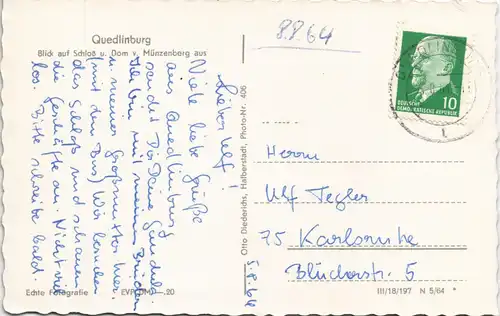 Quedlinburg
Blick auf Schloß u. Dom v. Münzenberg aus
8.8.64
Lieber Ulf!
Viele liebe Grüße
aus Quedlinburg
sendet Dir Deine
Ich bin mit meinem Bruder
u. meiner Großmutter hier.
(mit dem Bus) Wir besuchen
das Schloß und schauen
die Geschäfte an. Nicht viel
los. Bitte schreibe bald.
Echte Fotografie EVP (DM) -.20
Otto Diederichs, Halberstadt, Photo-Nr. 406
5.8.64
DEUTSCHE
DEMOKRATISCHE REPUBLIK
10
Herrn
Ulf Tegler
75 Karlsruhe
Blücherstr. 5
III/18/197 N 5/64